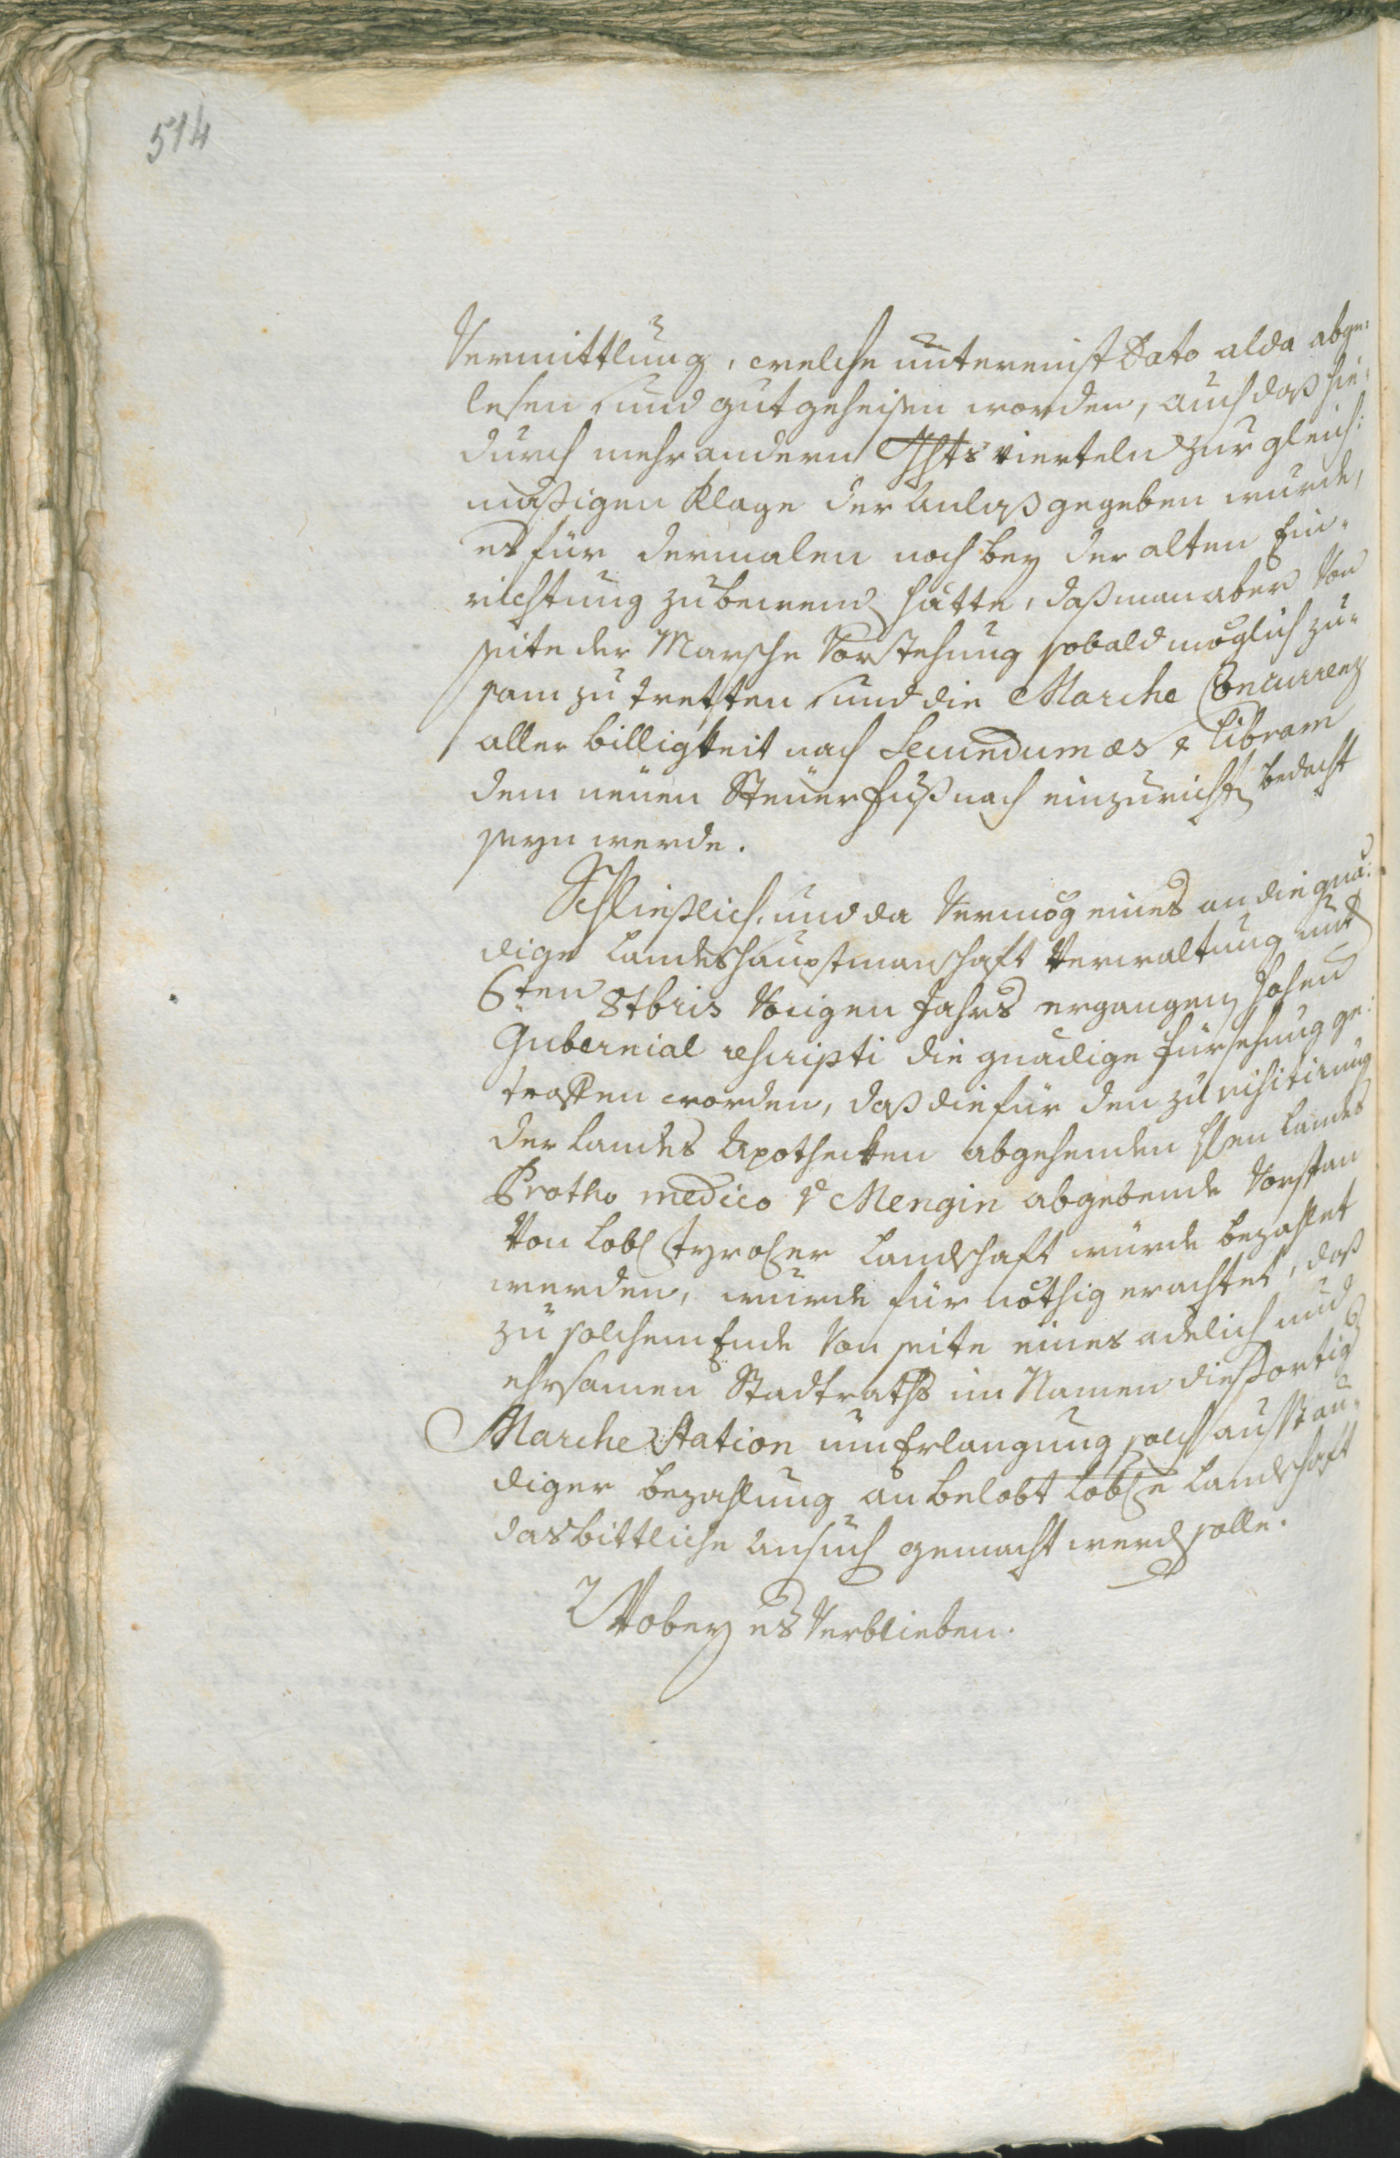 514
Vermittlung, welche untereinst Dato alda abge-
lesen und gutgeheisen worden, auch daß hie-
durch mehr andern Ghts vierteln zur gleich-
mäßigen Klage der Anlaß gegeben wurde,
es für dermalen noch bey der alten Ein-
richtung zu bewend hätte, daß man aber von
seite der Marsche Vorstehung sobald möglich zu-
sam zu tretten und die Marche Concurrenz
aller billigkeit nach Secundum æs & libram
dem neuen Steuerfuß nach einzuricht bedacht
seyn werde.
Schließlich, und da vermög eines an die gnä-
dige Landeshauptmanschaft Verwaltung unt
6ten 8tbris vorigen Jahrs ergangen hohen
Gubernial rescripti die gnädige fürsehung ge-
troffen worden, daß die für den zu visitirung
der Landes Apotheken abgehenden Hen Landes
Protho medico v Mengin abgebende Vorspan
von Lobl tyroler Landschaft würde bezahlet
werden, wurde für nöthig erachtet, daß
zu solchem Ende von seite eines adelich und
ehrsamen Stadtraths im Namen diesortig
Marche Station um Erlangung solch ausstän-
diger bezahlung an belobt lobe Landschaft
das bittliche Ansuch gemacht werd solle.
Wobey es verblieben.